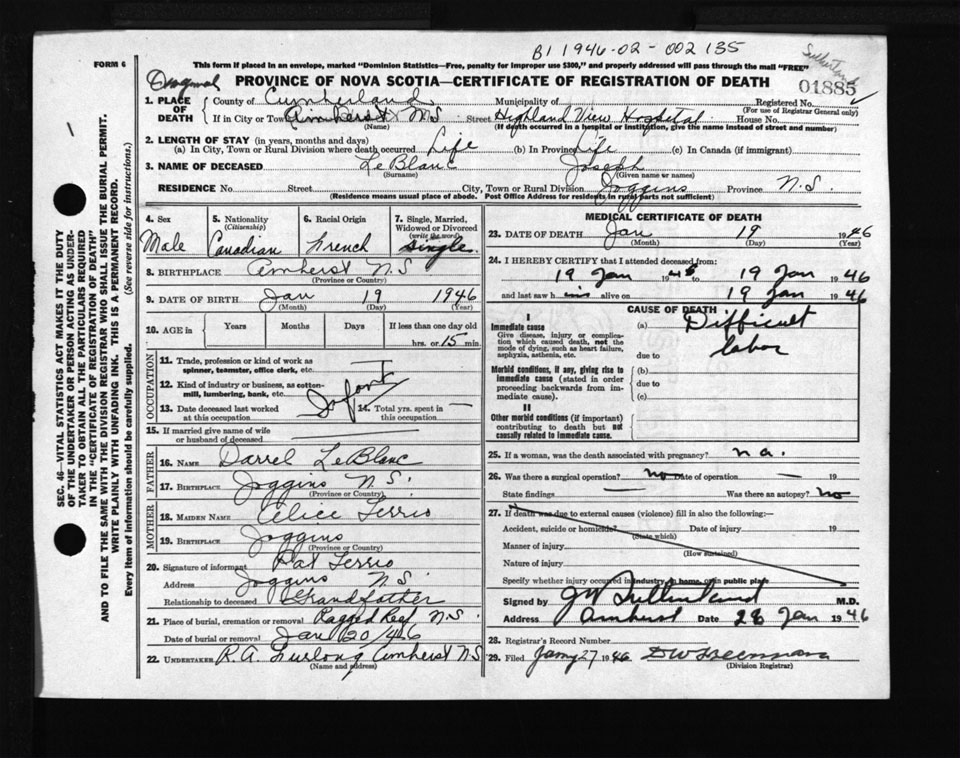 B1 1946-02-002135
FORM 6
This form if placed in an envelope, marked "Dominion Statistics—Free, penalty for improper use $300," and properly addressed will pass through the mail "FREE"
Sutherland
PROVINCE OF NOVA SCOTIA—CERTIFICATE OF REGISTRATION OF DEATH
01885
1. PLACE OF DEATH
County of Cumberland Municipality of Registered No.
(For use of Registrar General only)
If in City or Town Amherst N S Street Highland View Hospital House No.
(Name) (If death occurred in a hospital or institution, give the name instead of street and number)
2. LENGTH OF STAY (in years, months and days)
(a) In City, Town or Rural Division where death occurred Life (b) In Province Life (c) In Canada (if immigrant)
3. NAME OF DECEASED LeBlanc Joseph
(Surname) (Given name or names)
RESIDENCE No. Street City, Town or Rural Division Joggins Province N.S.
(Residence means usual place of abode. Post Office Address for residents in rural parts not sufficient)
SEC. 46—VITAL STATISTICS ACT MAKES IT THE DUTY
OF THE UNDERTAKER OR PERSON ACTING AS UNDER-
TAKER TO OBTAIN ALL THE PARTICULARS REQUIRED
IN THE "CERTIFICATE OF REGISTRATION OF DEATH"
AND TO FILE THE SAME WITH THE DIVISION REGISTRAR WHO SHALL ISSUE THE BURIAL PERMIT.
WRITE PLAINLY WITH UNFADING INK. THIS IS A PERMANENT RECORD.
Every item of information should be carefully supplied. (See reverse side for instructions.)
4. Sex
Male
5. Nationality
(Citizenship)
Canadian
6. Racial Origin
French
7. Single, Married,
Widowed or Divorced
(write the word)
single
8. BIRTHPLACE Amherst N S
(Province or Country)
9. DATE OF BIRTH Jan 19 1946
(Month) (Day) (Year)
10. AGE in Years Months Days If less than one day old
hrs. or 15 min.
OCCUPATION
11. Trade, profession or kind of work as
spinner, teamster, office clerk, etc.
12. Kind of industry or business, as cotton-
mill, lumbering, bank, etc.
Infant
13. Date deceased last worked
at this occupation
14. Total yrs. spent in
this occupation
15. If married give name of wife
or husband of deceased
FATHER
16. NAME Darrel LeBlanc
17. BIRTHPLACE Joggins N S.
(Province or Country)
MOTHER
18. MAIDEN NAME Alice Terrio
19. BIRTHPLACE Joggins
(Province or Country)
20. Signature of informant Pat Terrio
Address Joggins N. S.
Relationship to deceased Grandfather
21. Place of burial, cremation or removal Ragged Reef N.S.
Date of burial or removal Jan 20/46
22. UNDERTAKER R. A. Furlong Amherst N S
(Name and address)
MEDICAL CERTIFICATE OF DEATH
23. DATE OF DEATH Jan 19 1946
(Month) (Day) (Year)
24. I HEREBY CERTIFY that I attended deceased from:
19 Jan 1946 to 19 Jan 1946
and last saw him alive on 19 Jan 1946
CAUSE OF DEATH
I
Immediate cause
Give disease, injury or complica-
tion which caused death, not the
mode of dying, such as heart failure,
asphyxia, asthenia, etc.
(a) Difficult
labor
due to
Morbid conditions, if any, giving rise to
immediate cause (stated in order
proceeding backwards from im-
mediate cause).
(b)
due to
(c)
II
Other morbid conditions (if important)
contributing to death but not
causally related to immediate cause.
25. If a woman, was the death associated with pregnancy? n.a.
26. Was there a surgical operation? no Date of operation — 19
State findings — Was there an autopsy? no
27. If death was due to external causes (violence) fill in also the following:—
Accident, suicide or homicide Date of injury 19
(State which)
Manner of injury
(How sustained)
Nature of injury
Specify whether injury occurred in industry, in home, or in public place
Signed by J W Sutherland M.D.
Address Amherst Date 28 Jan 1946
28. Registrar's Record Number
29. Filed Jany 27 1946
(Division Registrar)